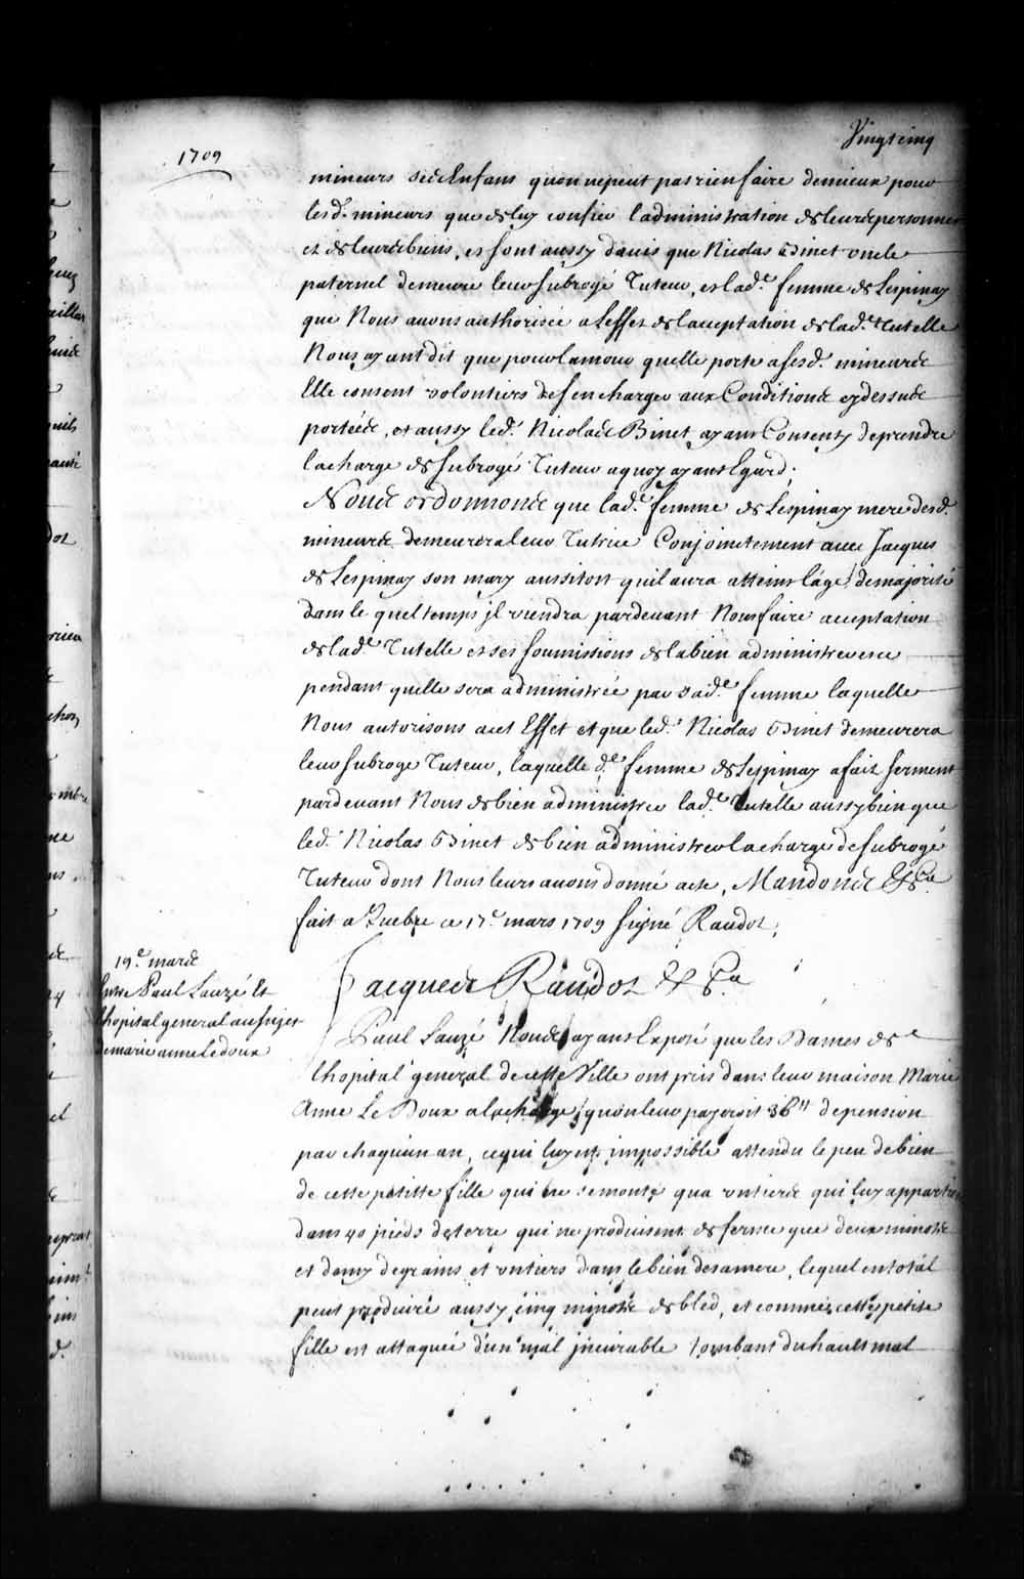 Vingtcinq
1709
mineurs ses Enfans quon ne peut pas rien faire de mieux pour
lesd. mineurs que de luy confier l'administration de leurs personnes
et de leurs biens, et sont aussy davis que Nicolas Binet oncle
paternel demeure leur subrogé Tuteur, et lad.e femme de Lespinay
que Nous avons authorisée a Leffet de lacceptation de lad.e tutelle
Nous ayant dit que pour lamour quelle porte a sesd. mineurs
Elle consent volontiers de sen charger aux Conditions cy dessus
portées, et aussy led.t Nicolas Binet ayant Consenty de prendre
la charge de subrogé Tuteur a quoy ayant Egard;
Nous ordonnons que lad.e femme de Lespinay mere desd.
mineurs demeurera leur Tutrice Conjointement avec Jacques
de Lespinay son mary aussitost quil aura atteint lâge de majorité
dans le quel temps jl viendra pardevant Nous faire acceptation
de lad.e Tutelle et ses soumissions de la bien administrer et ce
pendant quelle sera administrée par sad.e femme laquelle
Nous autorisons a cet Effet et que led.t Nicolas Binet demeurera
leur subrogé Tuteur, laquelle d.e femme de Lespinay a fait serment
pardevant Nous de bien administrer lad.e tutelle aussy bien que
led.t Nicolas Binet de bien administrer la charge de subrogé
Tuteur dont Nous leurs avons donné acte, Mandons &c.a
fait a Quebec ce 17.e mars 1709 signé Raudot;
19.e mars
Entre Paul Lauzé Et
lhopital general au sujet
de marie anne le doux
Jacques Raudot &c.a
Paul Lauzé Nous ayant Exposé que les Dames de
lhopital general de cette Ville ont pris dans leur maison Marie
Anne Le Doux a la charge quon leur payeroit 36ll de pension
par chaquun an, ce qui luy est impossible attendu le peu de bien
de cette petitte fille qui ne se monte qua un tiers qui luy appartient
dans 40 pieds de terre qui ne produisent de ferme que deux minots
et demy de grains et un tiers dans le bien de sa mere, lequel en total
peut produire aussy cinq minots de bled, et comme cette petite
fille est attaquée d'un mal jncurable tombant du hault mal